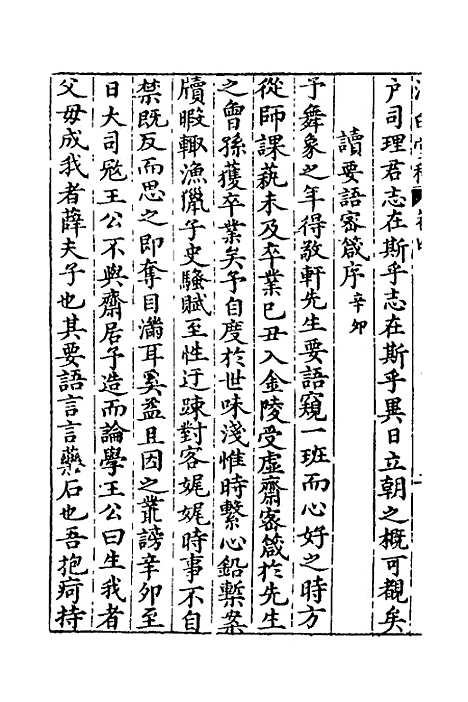 户司理君志在斯乎志在斯乎異日立朝之概可觀矣
讀要語密箴序辛卯
予舞象之年得敬軒先生要語窺一班而心好之時方
從師課蓺未及卒業己丑入金陵受虛齋密箴於先生
之曾孫獲卒業矣予自度於世味淺惟時繫心鉛槧案
牘暇輙漁獵子史騷賦至性迂踈對客娓娓時事不自
禁既反而思之即奪目滿耳奚益且因之叢謗辛卯至
日大司㓂王公不與齋居予造而論學王公曰生我者
父毋成我者薛夫子也其要語言言藥石也吾抱疴持